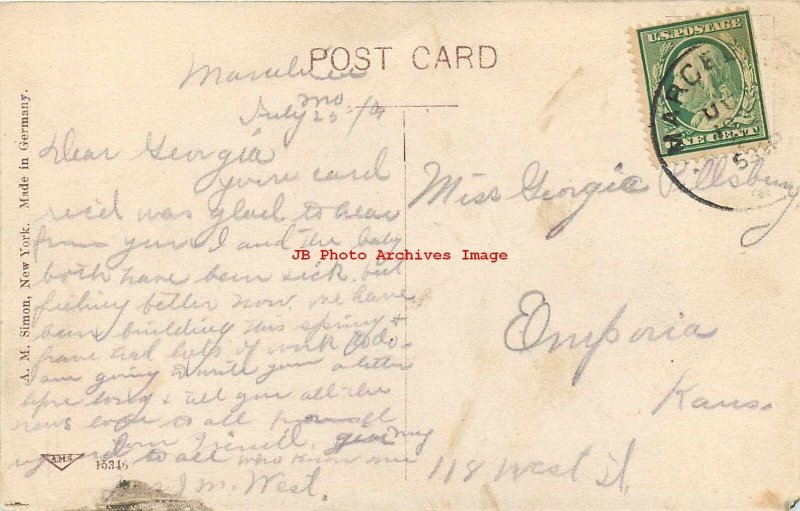 POST CARD
Marceline
Mo
July 25 -/10
Dear Georgia
youre card
rec'd was glad to hear
from you I and the baby
both have been sick. but
feeling better now. we have
been building this spring &
have had lots of work to do.
am going to write you a letter
before long & tell you all the
news love to all from all
your Friend, give my
regard to all who know me
J M. West.
Miss Georgie Pillsbury
Emporia
Kans.
118 West St,
U.S. POSTAGE
ONE CENT
MARCEL
JU
A. M. Simon, New York. Made in Germany.
AMS
15346
JB Photo Archives Image